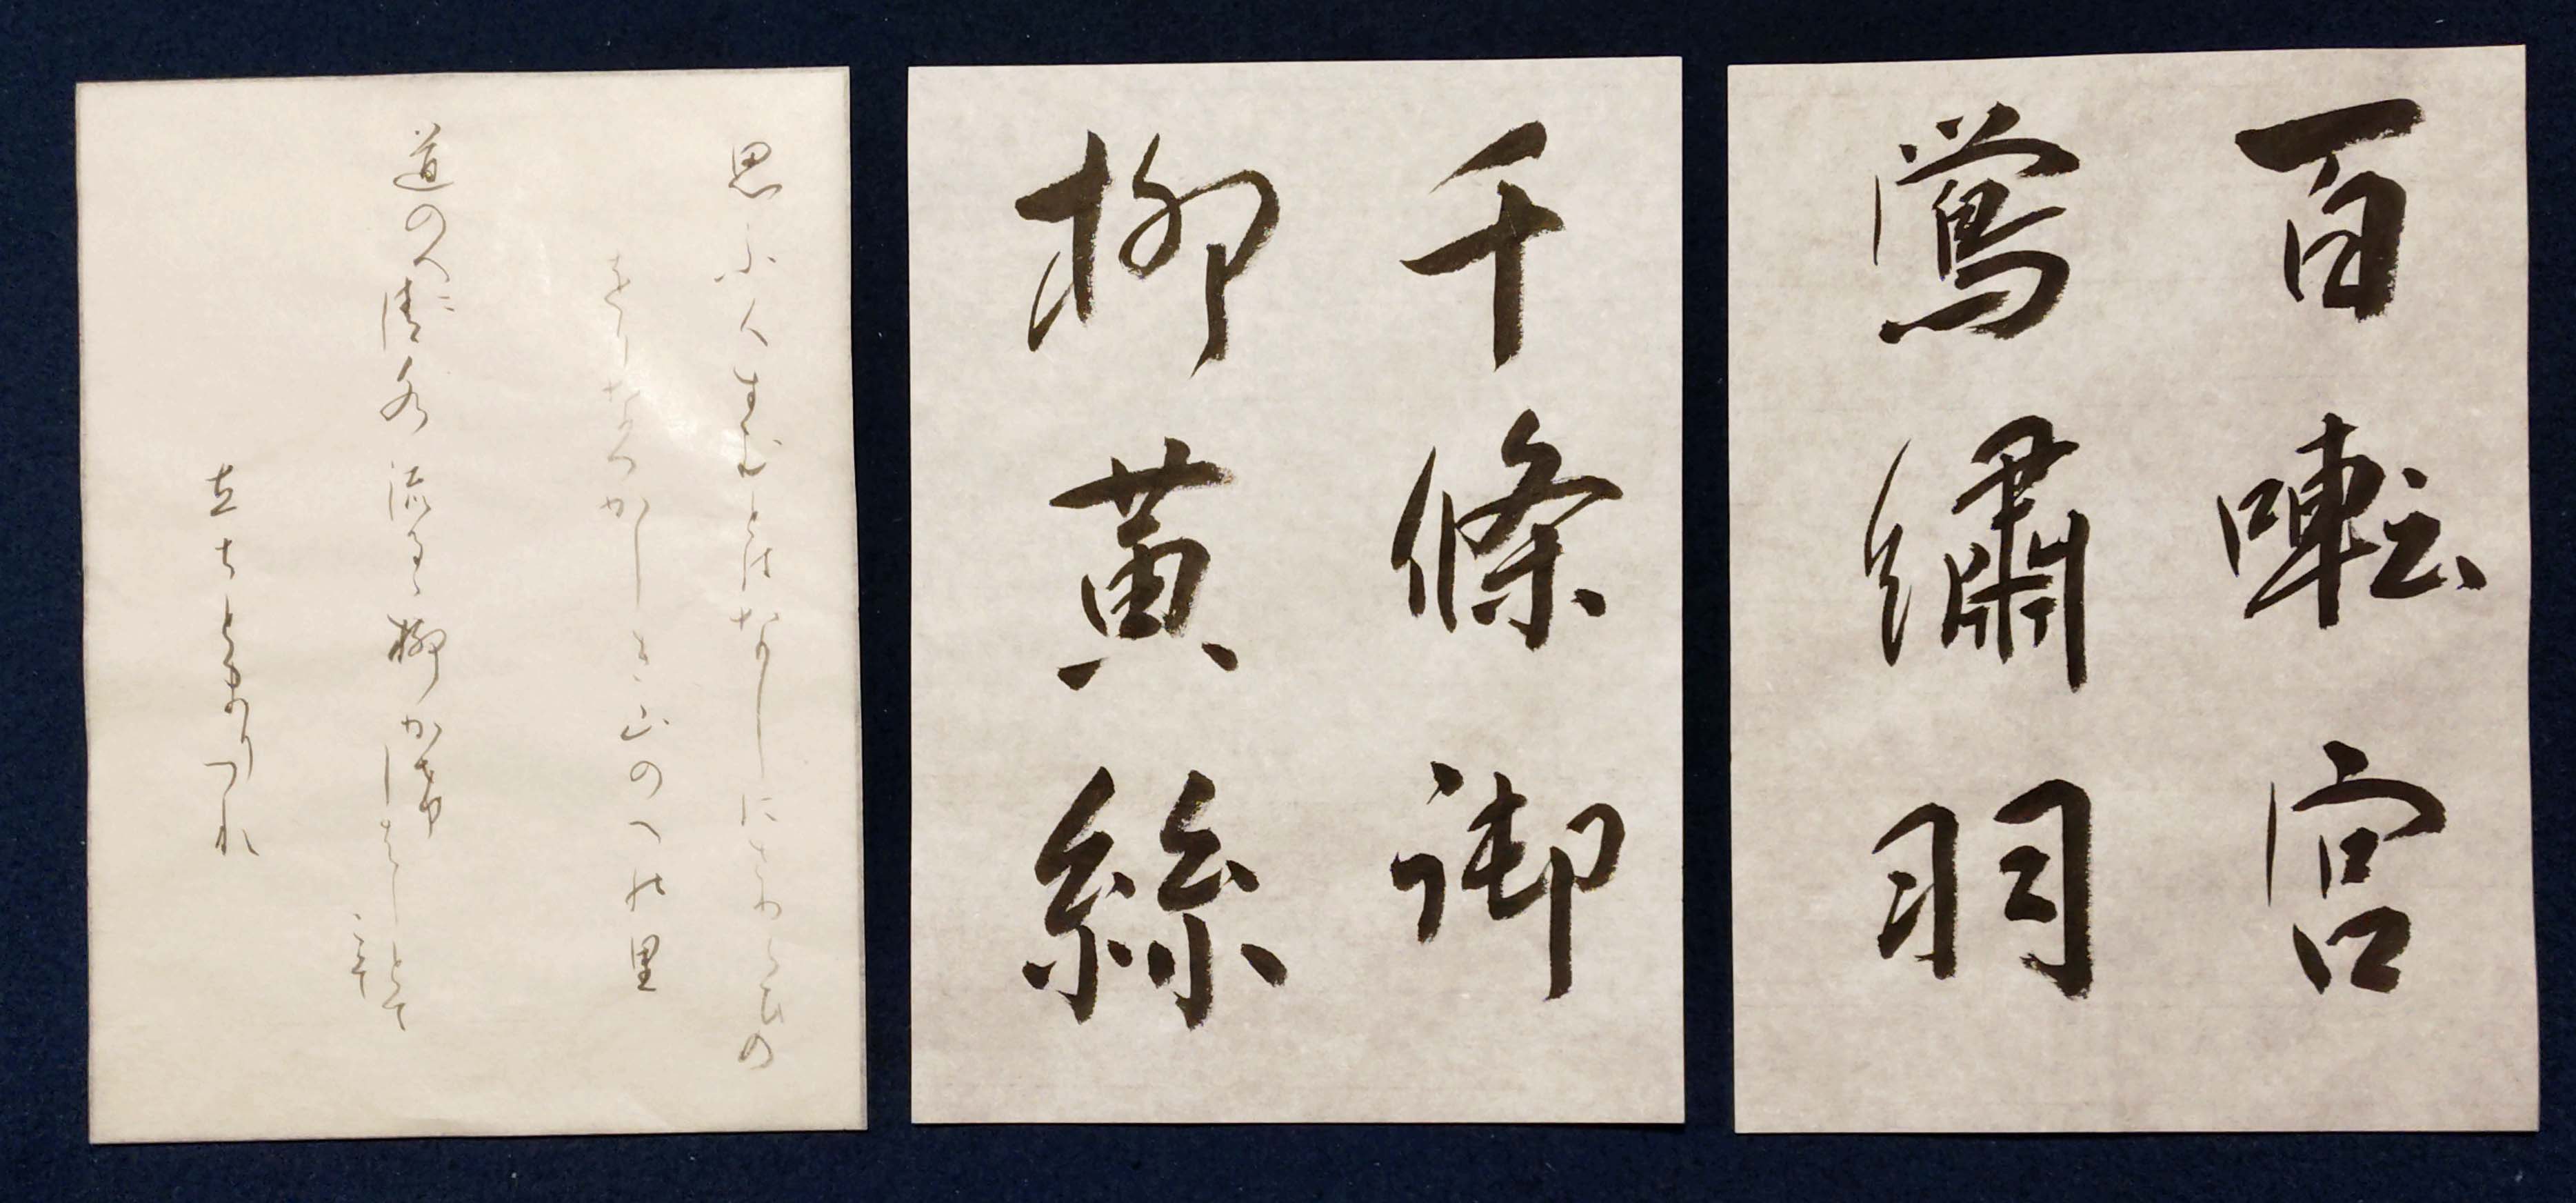 百囀宮
鶯繡羽
千條御
柳黄絲
思ふ人すむとはなしにさわらひの
をりなつかしき山のへの里
道のへに清水流るゝ柳かけしはしとて
こそ
立ちとまりつれ